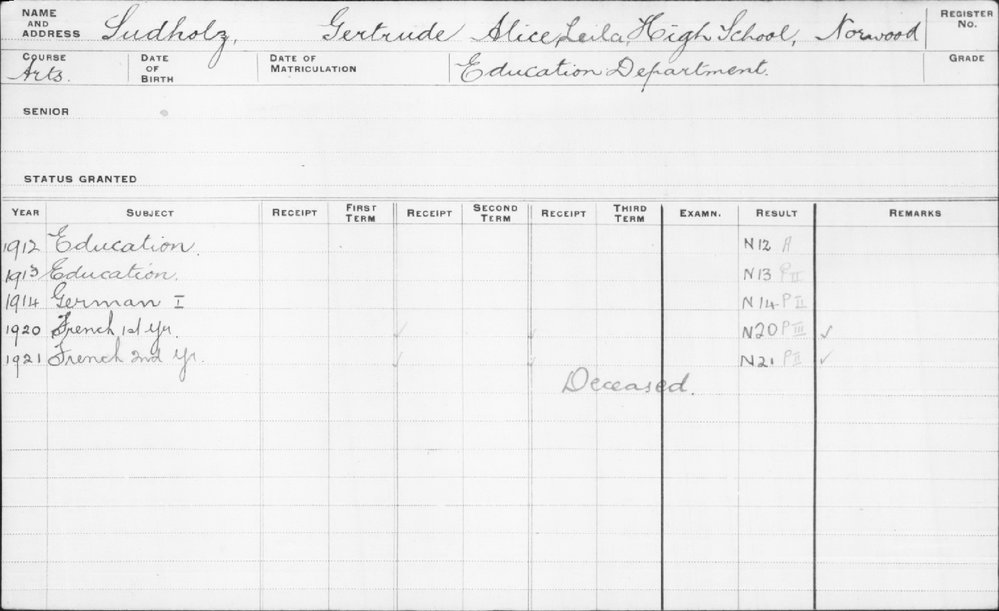 NAME AND ADDRESS Sudholz, Gertrude Alice, Leila, High School, Norwood REGISTER No.
COURSE Arts. DATE OF BIRTH DATE OF MATRICULATION Education Department. GRADE
SENIOR
STATUS GRANTED
YEAR SUBJECT RECEIPT FIRST TERM RECEIPT SECOND TERM RECEIPT THIRD TERM EXAMN. RESULT REMARKS
1912 Education. N12 A
1913 Education. N13 P II
1914 German I N14 P II
1920 French 1st Yr. ✓ ✓ N20 P III ✓
1921 French 2nd Yr. ✓ ✓ N21 P II ✓
Deceased.